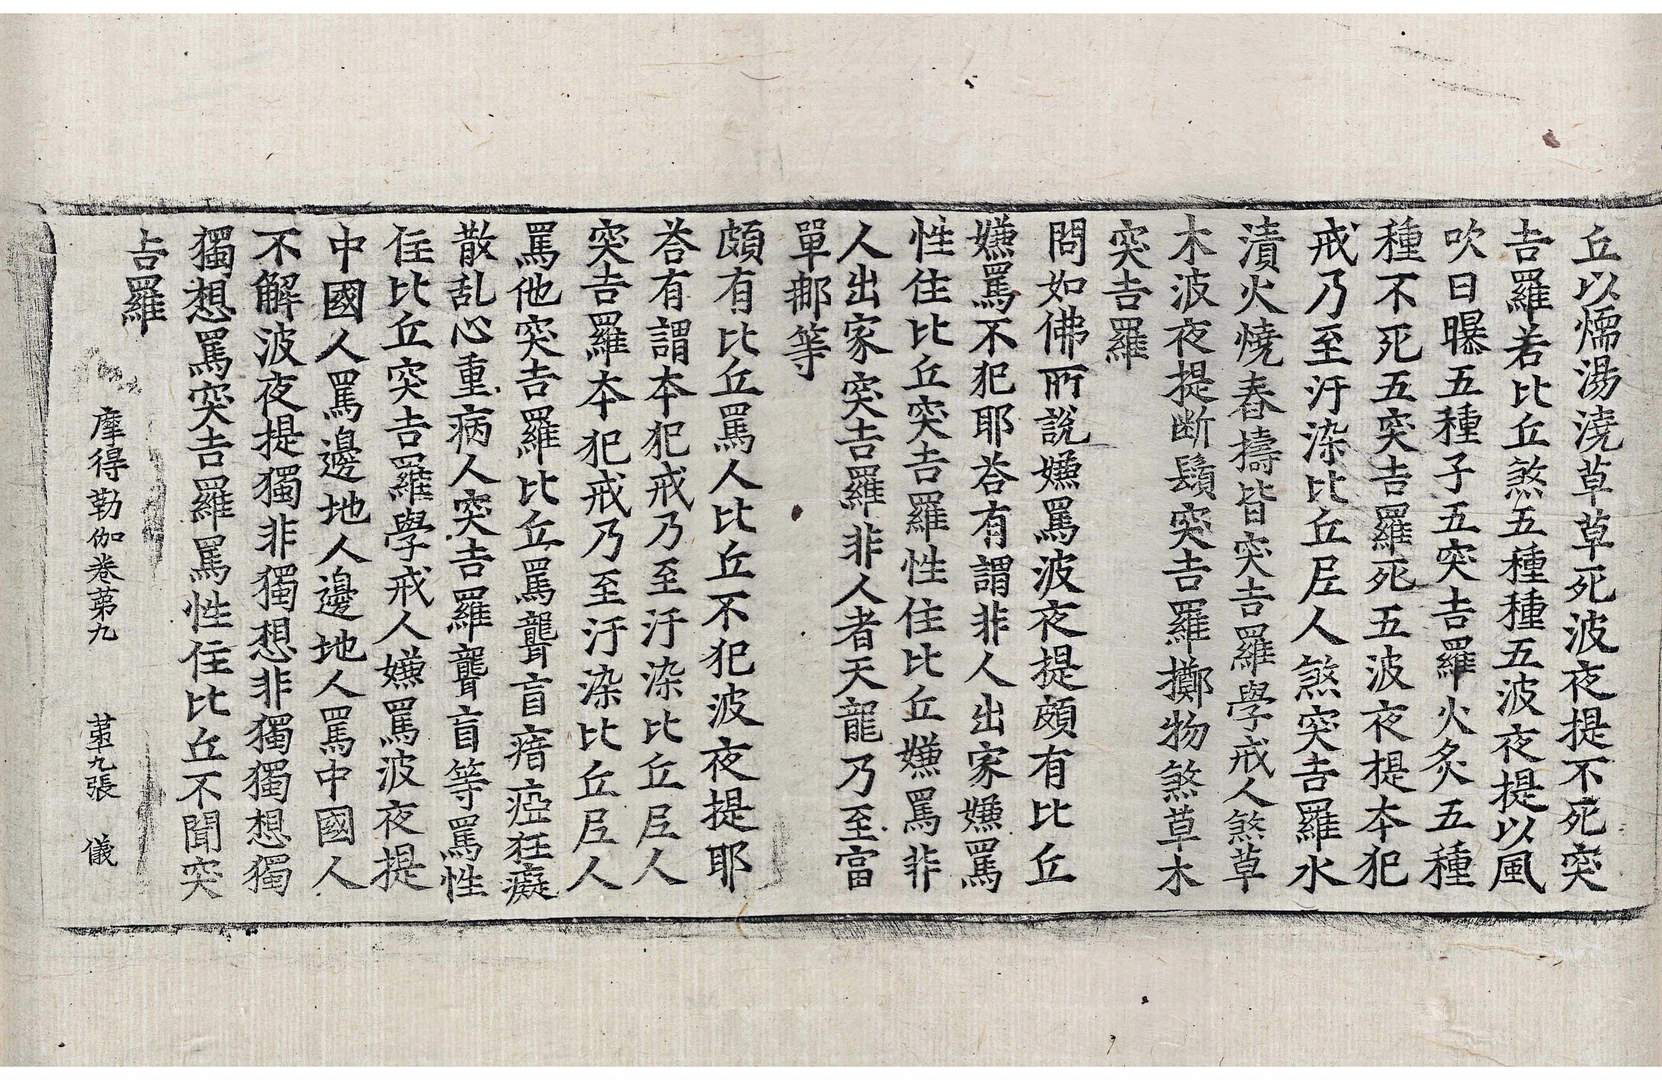 丘以㶨湯澆草草死波夜提不死突
吉羅若比丘煞五種種五波夜提以風
吹日曝五種子五突吉羅火炙五種
種不死五突吉羅死五波夜提本犯
戒乃至汙染比丘尼人煞突吉羅水
漬火燒舂擣皆突吉羅學戒人煞草
木波夜提斷鬚突吉羅擲物煞草木
突吉羅
問如佛所說嫌罵波夜提頗有比丘
嫌罵不犯耶荅有謂非人出家嫌罵
性住比丘突吉羅性住比丘嫌罵非
人出家突吉羅非人者天龍乃至富
單那等
頗有比丘罵人比丘不犯波夜提耶
荅有謂本犯戒乃至汙染比丘尼人
突吉羅本犯戒乃至汙染比丘尼人
罵他突吉羅比丘罵聾盲瘖瘂狂癡
散乱心重病人突吉羅聾盲等罵性
住比丘突吉羅學戒人嫌罵波夜提
中國人罵邊地人邊地人罵中國人
不解波夜提獨非獨想非獨獨想獨
獨想罵突吉羅罵性住比丘不聞突
吉羅
摩得勒伽卷苐九 苐九張 儀